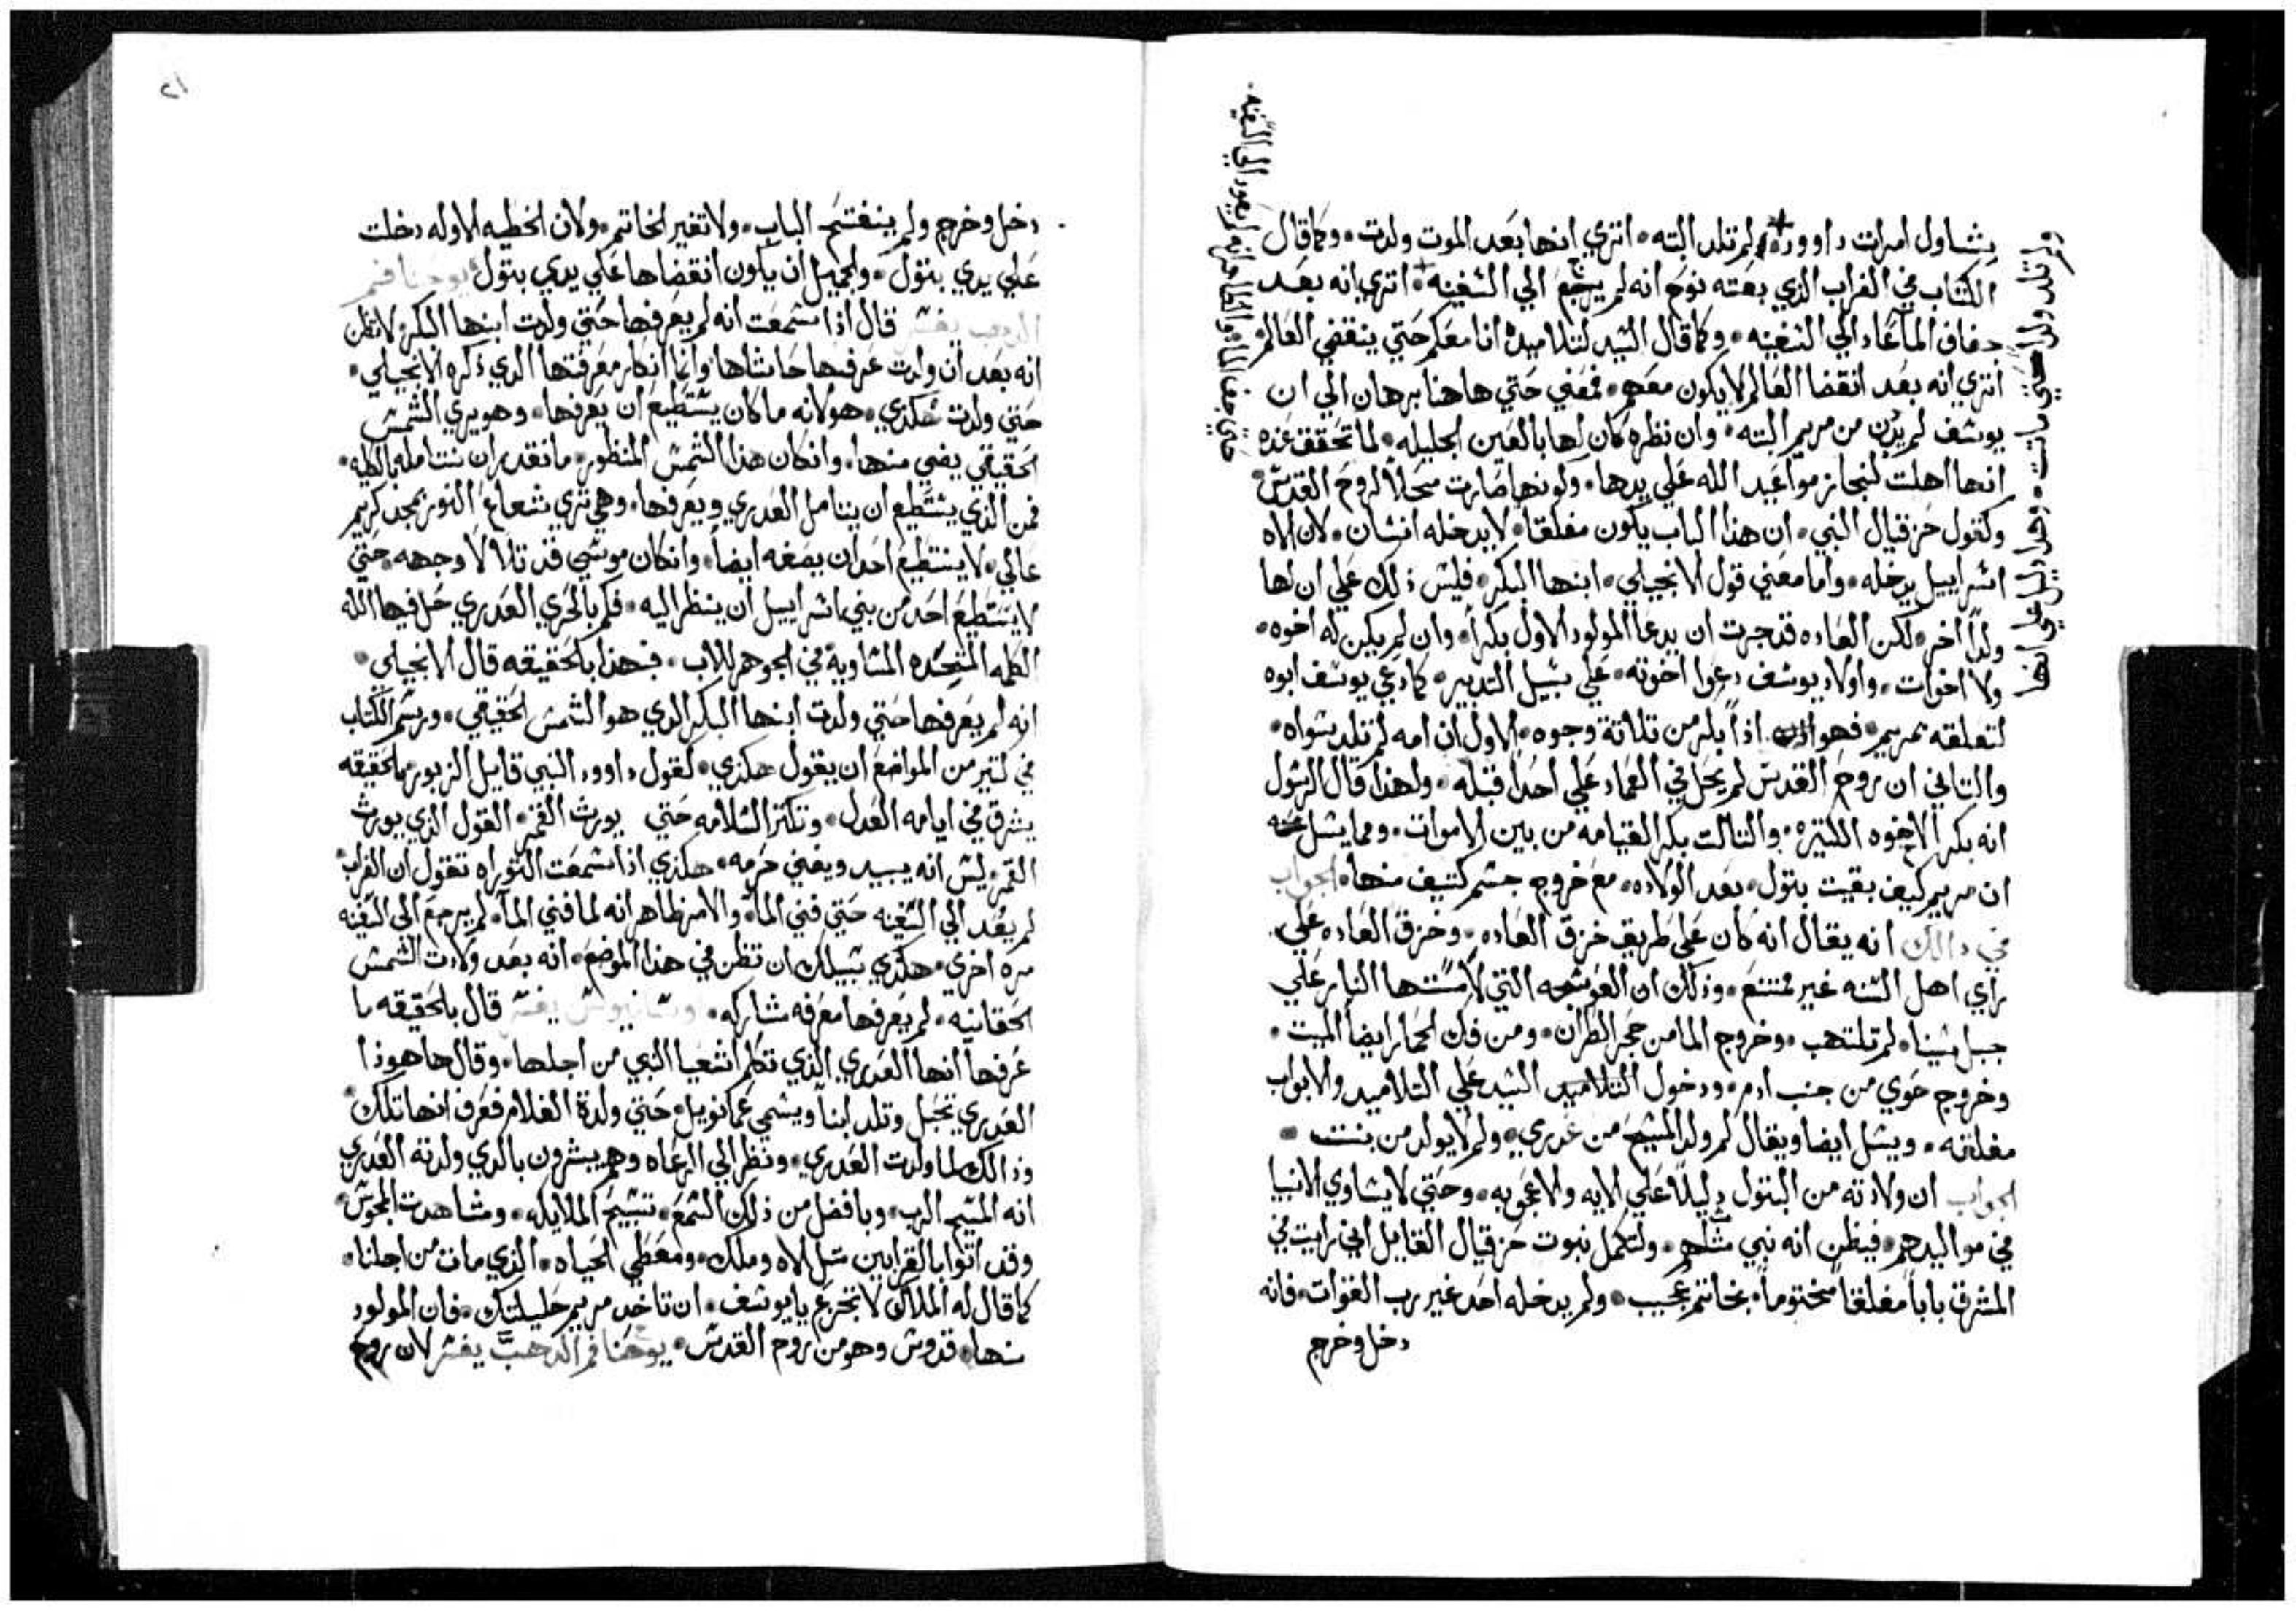 بشاول امرات داوود ولم تلد البته • اتري انها بعد الموت ولدت • وكما قال
الكتاب في الغراب الذي بعته نوح انه لم يرجع الي السفينه • اتري انه بعد
جفاف الما عاد الي السفينه • وكما قال السيد لتلاميده انا معكم حتي ينقضي العالم
اتري انه بعد انقضا العالم لا يكون معهم • فمعني حتي هاهنا برهان الي ان
يوسف لم يدن من مريم البته • وان نظره كان لها بالعين الجليله • لما تحقق عنده
انها اهلت لنجاز مواعيد الله علي يدها • وكونها صارت محلاً لروح القدس
وكقول حزقيال النبي • ان هذا الباب يكون مغلقا • لا يدخله انسان • لان الاه
اسراييل يدخله • واما معني قول الانجيلي • ابنها البكر • فليس ذلك علي ان لها
ولداً اخر • لكن العاده قد جرت ان يدعا المولود الاول بكراً • وان لم يكن له اخوه •
ولا اخوات • واولاد يوسف دعوا اخوته • علي سبيل التدبير • كما دعي يوسف ابوه
لتعلقه بمريم • فهو اذاً بكر من تلاتة وجوه • الاول ان امه لم تلد سواه •
والتاني ان روح القدس لم يحل في العماد علي احداً قبله • ولهذا قال الرسول
انه بكر الاخوه الكتيره • والتالت بكر القيامه من بين الاموات • ومما يسل عنه
ان مريم كيف بقيت بتول • بعد الولاده • مع خروج جسم كتيف منها • الجواب
في دالك انه يقال انه كان علي طريق خرق العاده • وخرق العاده علي
راي اهل السنه غير ممتنع • وذلك ان العوسجه التي لامستها النار علي
جبل سينا • لم تلتهب • وخروج الما من حجر الظران • ومن فك الحمار ايضاً الميت •
وخروج حوي من جنب ادم • ودخول السيد علي التلاميد والابواب
مغلقه • ويسل ايضا ويقال لم ولد المسيح من عدري • ولم لا يولد من بنت •
الجواب ان ولادته من البتول دليلاً علي الايه والاعجوبه • وحتي لا يساوي الانبيا
في مواليدهم • فيظن انه نبي متلهم • ولتكمل نبوت حزقيال القايل اني رايت في
المشرق باباً مغلقاً مختوماً • بخاتم عجيب • ولم يدخله احد غير رب القوات • فانه
دخل وخرج
ولم تلد ولد حتي ماتت • وهدا دليل علي انها
حتي جف الماء والظاهر انه لم يعود الي السفينه •
٢١
دخل وخرج ولم ينفتح الباب • ولا تغير الخاتم • ولان الخطيه الاوله دخلت
علي يدي بتول • والجميل ان يكون انقضاها علي يدي بتول يوحنا فم
الدهب يفسر قال اذا سمعت انه لم يعرفها حتي ولدت ابنها البكر ولا تظن
انه بعد ان ولدت عرفها حاشاها • وانما انكار معرفتها الدي ذكره الانجيلي •
حتي ولدت هكذي • هو لانه ما كان يستطيع ان يعرفها • وهو يري الشمس
الحقيقي يضي منها • وان كان هذا الشمس المنظور • ما نقدر ان نتامله بالكليه •
فمن الذي يستطيع ان يتامل العدري ويعرفها • وهي تري شعاع النور بمجد كريم
عالي • لا يستطيع احد ان يصفه ايضاً • وان كان موسي قد تلالا وجهه • حتي
لا يستطيع احد من بني اسراييل ان ينظر اليه • فكم بالحري العدري حل فيها الله
الكلمه المتحده المساوية في الجوهر للاب • فبهذا بالحقيقه قال الانجيلي •
انه لم يعرفها حتي ولدت ابنها البكر الدي هو الشمس الحقيقي • ورسم الكتاب
في كتير من المواضع ان يقول هكذي • كقول داوود النبي قايل الزبور بالحقيقه
يشرق في ايامه العدل • وتكتر السلامه حتي يورث القمر • القول الذي يورث
القمر • ليس انه يبيد ويفني جرمه • هكذي اذا سمعت التوراه تقول ان الغراب
لم يعد الي السفينه حتي فني الما • والامر ظاهر انه لما فني الما • لم يرجع الي السفينه
مره اخري • هكذي سبيلك ان تظن في هذا الموضع • انه بعد ولادت الشمس
الحقانيه • لم يعرفها معرفه مشاركه • وساويرس يفسر قال بالحقيقه ما
عرفها انها العدري الذي تكلم اشعيا النبي من اجلها • وقال ها هوذا
العدري تحبل وتلد ابناً ويسمي عمانويل • حتي ولدة الغلام فعرف انها تلك
وذالك لما ولدت العدري • ونظر الي الرعاه وهم يبشرون بالدي ولدته العدري
انه المسيح الرب • وبافضل من ذلك السمع • تسبيح الملايكه • ومشاهدت المجوس
وقد اتوا بالقرابين متل الاه وملك • ومعطي الحياه • الذي مات من اجلنا •
كما قال له الملاك لا تجزع يا يوسف • ان تاخد مريم حليلتك • فان المولود
منها • قدوس وهو من روح القدس • يوحنا فم الدهب يفسر لان روح